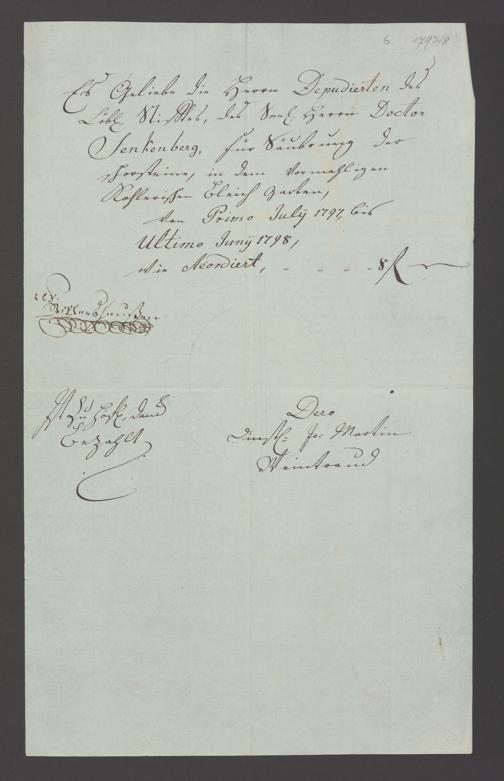 6. 1797/8
Es Geliebe die Herrn Depudierten des
Löbl. Stifftes, des Seel. Herrn Doctor
Senkenberg, für Säubrung der
schorsteine, in dem Vormahligen
Kohlerischen Bleich Garten,
von Primo July 1797, bis
Ultimo Juny 1798,
wie Acordiert, - - - - 8 f
Ist zu Dank
bezahlt
Dero
Dienstf: Jo: Martin
Weintraud